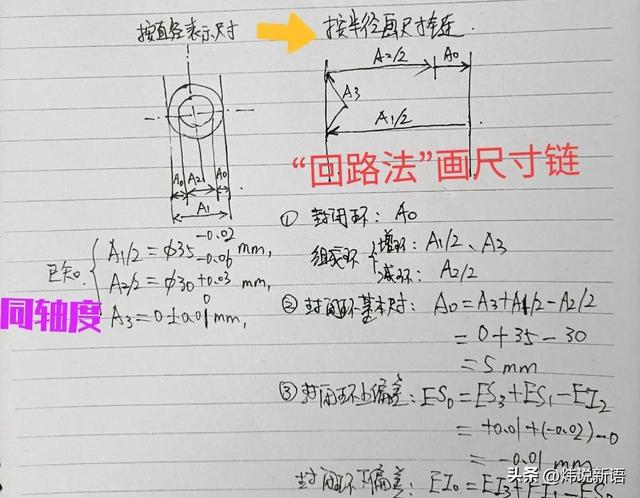 按直径表示尺寸
按半径画尺寸链.
A2/2 A0
A3
A1/2
A0 A2 A0
A1
“回路法”画尺寸链
① 封闭环: A0
组成环 { 增环: A1/2、A3
减环: A2/2
已知. { A1/2 = ϕ35 -0.02 -0.06 mm,
A2/2 = ϕ30 +0.03 0 mm,
A3 = 0±0.01mm,
同轴度
② 封闭环基本尺寸: A0 = A3+A1/2-A2/2
= 0+35-30
= 5mm
③ 封闭环上偏差: ES0 = ES3+ES1-EI2
= +0.01+(-0.02)-0
= -0.01mm
封闭环下偏差: EI0 = EI3+EI1-ES2
头条 @炜说新语